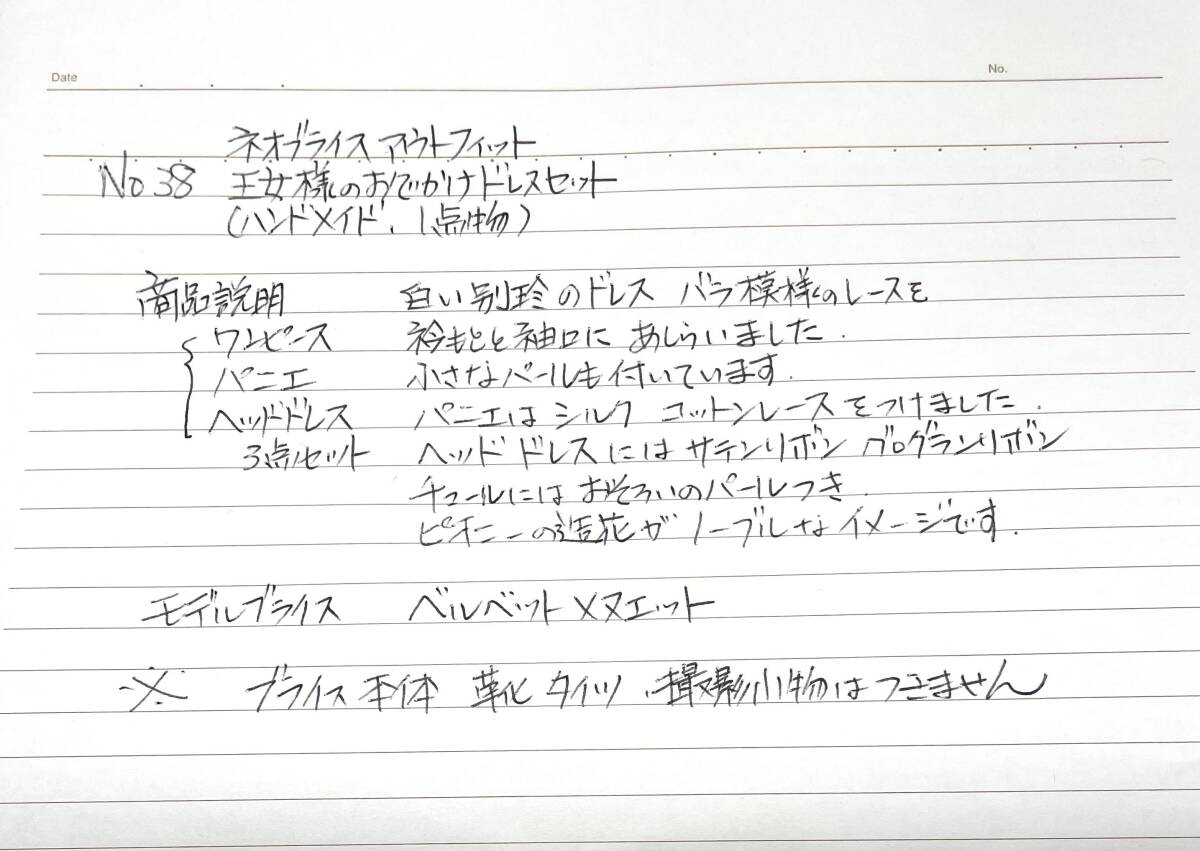 Date
No.
ネオブライス アウトフィット
No 38 王女様のおでかけドレスセット
(ハンドメイド、1点物)
商品説明 白い別珍のドレス バラ模様のレースを
ワンピース 衿もとと袖口に あしらいました.
パニエ 小さなパールも付いています.
ヘッドドレス パニエはシルク コットンレースをつけました.
3点セット ヘッドドレスにはサテンリボン グログランリボン
チュールにはおそろいのパールつき.
ピオニーの造花がノーブルなイメージです.
モデルブライス ベルベットメヌエット
※ ブライス本体 革化 タイツ、撮影小物はつきません